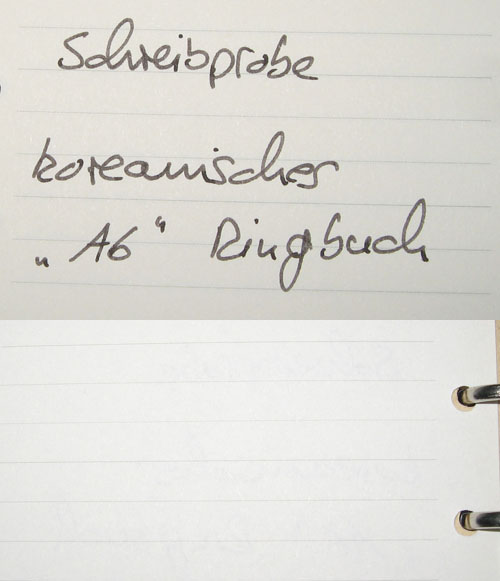 Schreibprobe
koreanisches
„A6“ Ringbuch